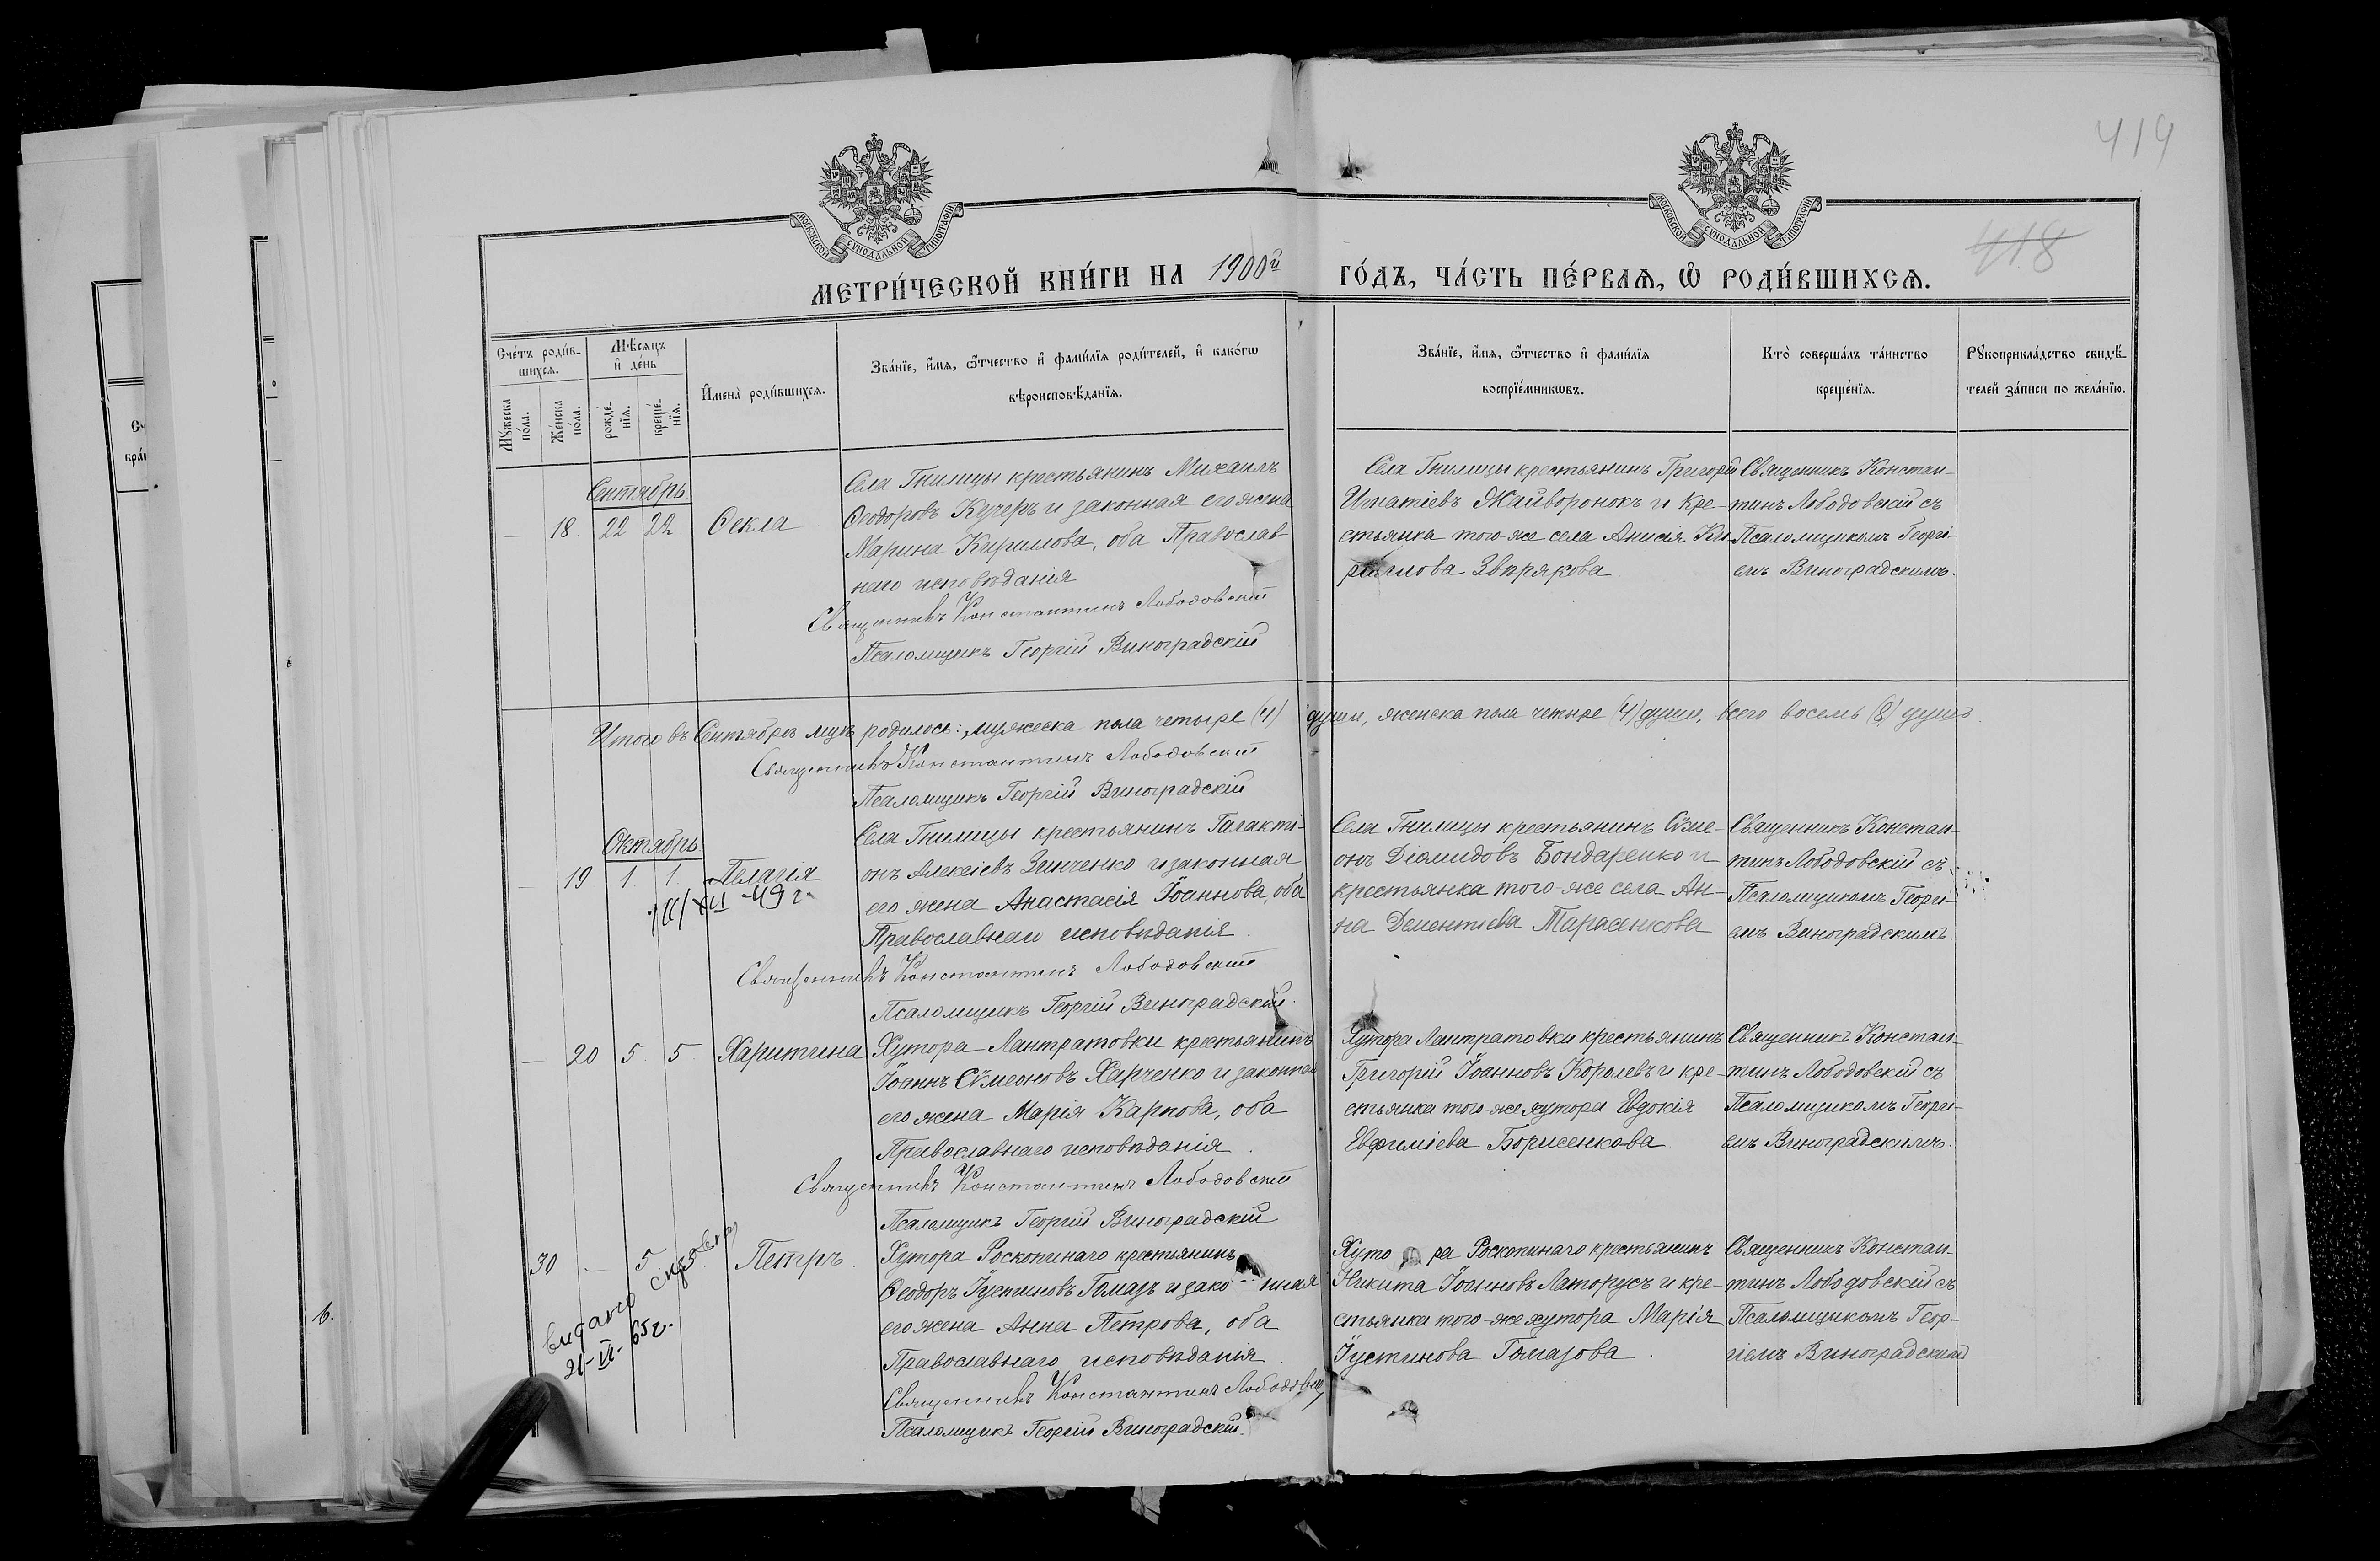 419
418
МОСКОВСКОЙ СУНОДАЛЬНОЙ ТИПОГРАФІИ
МОСКОВСКОЙ СУНОДАЛЬНОЙ ТИПОГРАФІИ
МЕТРИ́ЧЕСКОЙ КНИ́ГИ НА 1900й ГО́ДЪ, ЧА́СТЬ ПЕ́РВАѦ, Ѡ РОДИ́ВШИХСѦ.
Сче́тъ роди́в-
шихсѧ.
Мꙋ́жеска
по́ла.
Же́нска
по́ла.
Мѣ́сѧцъ
и҆ де́нь
рожде́-
нїѧ.
креще́-
нїѧ.
И҆мена̀ роди́вшихсѧ.
Зва́нїе, и҆́мѧ, ѻ҆́тчество и҆ фами́лїѧ роди́телей, и҆ како́гѡ
вѣроисповѣ́данїѧ.
Зва́нїе, и҆́мѧ, ѻ҆́тчество и҆ фами́лїѧ
воспрїе́мникѡвъ.
Кто̀ соверша́лъ та́инство
креще́нїѧ.
Рꙋкоприкла́дство свидѣ́-
телей за́писи по жела́нїю.
Сентябрь
— 18. 22 22 Ѳекла
Села Гнилицы крестьянинъ Михаилъ
Ѳеодоровъ Кучеръ и законная его жена
Марина Кирилова, оба Православ-
наго исповѣданія
Священникъ Константинъ Лободовскій
Псаломщикъ Георгій Виноградскій
Села Гнилицы крестьянинъ Григорій
Игнатіевъ Жайворонокъ и кре-
стьянка того-же села Анисія Ки-
рилова Звѣрякова
Священникъ Констан-
тинъ Лободовскій съ
Псаломщикомъ Георгі-
емъ Виноградскимъ.
Итого въ Сентябрѣ мцѣ родилось: мужеска пола четыре (4) души, женска пола четыре (4) души, всего восемь (8) душъ.
Священникъ Константинъ Лободовскій
Псаломщикъ Георгій Виноградскій
Октябрь
— 19 1 1. Пелагія
XII -49 г.
Села Гнилицы крестьянинъ Галакті-
онъ Алексіевъ Зинченко и законная
его жена Анастасія Іоаннова, оба
Православнаго исповѣданія.
Священникъ Константинъ Лободовскій
Псаломщикъ Георгій Виноградскій.
Села Гнилицы крестьянинъ Сѵме-
онъ Діомидовъ Бондаренко и
крестьянка того-же села Ан-
на Дементіева Тарасенкова
Священникъ Констан-
тинъ Лободовскій съ
Псаломщикомъ Георгі-
емъ Виноградскимъ.
— 20 5. 5. Харитина
Хутора Лантратовки крестьянинъ
Іоаннъ Сѵмеоновъ Харченко и законная
его жена Марія Карпова, оба
Православнаго исповѣданія.
Священникъ Константинъ Лободовскій
Псаломщикъ Георгій Виноградскій
Хутора Лантратовки крестьянинъ
Григорій Іоанновъ Королевъ и кре-
стьянка того-же хутора Евдокія
Евфиміева Борисенкова
Священникъ Констан-
тинъ Лободовскій съ
Псаломщикомъ Георгі-
емъ Виноградскимъ.
30 — 5. 5. Петръ.
видано
21-VI-65г.
Хутора Роскопинаго крестьянинъ
Ѳеодоръ Іустиновъ Гамазъ и законная
его жена Анна Петрова, оба
Православнаго исповѣданія.
Священникъ Константинъ Лободовскій
Псаломщикъ Георгій Виноградскій.
Хутора Роскопинаго крестьянинъ
Никита Іоанновъ Латорусъ и кре-
стьянка того-же хутора Марія
Іустинова Гамазова.
Священникъ Констан-
тинъ Лободовскій съ
Псаломщикомъ Геор-
гіемъ Виноградскимъ